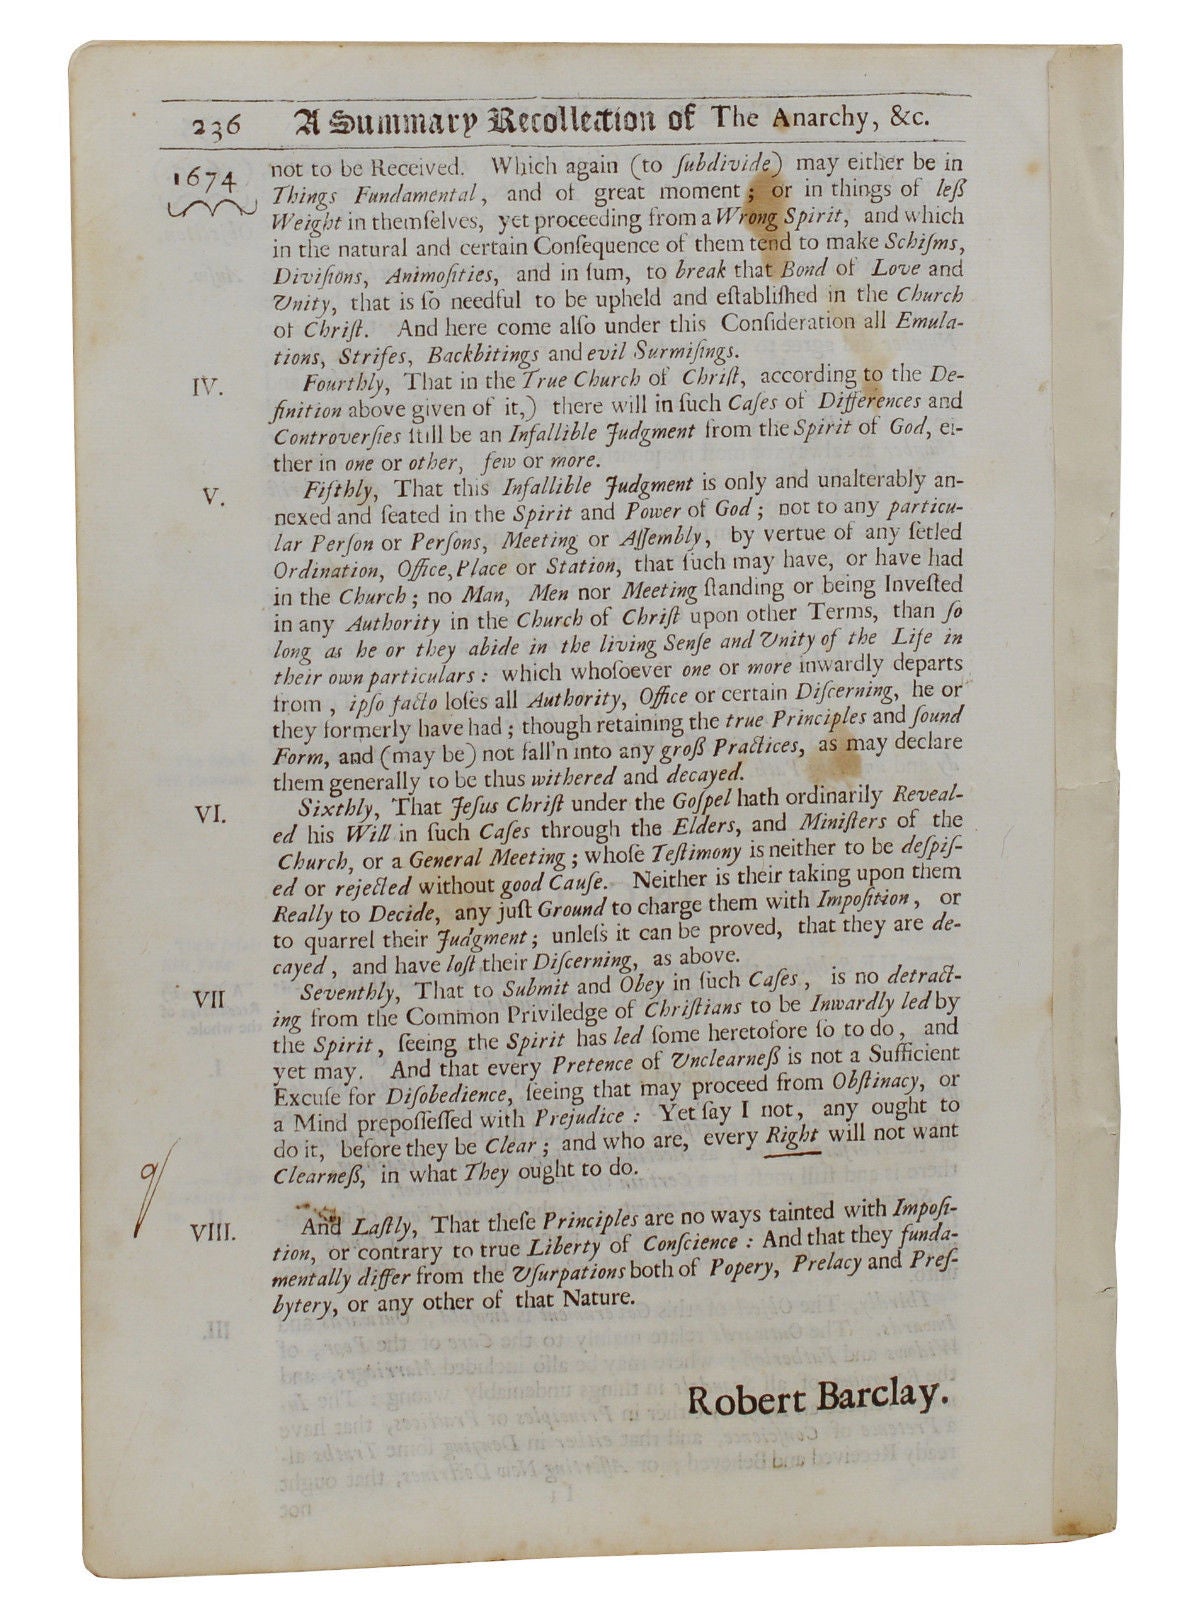 236 A Summary Recollection of The Anarchy, &c.
1674
not to be Received. Which again (to ſubdivide) may either be in
Things Fundamental, and of great moment; or in things of leß
Weight in themſelves, yet proceeding from a Wrong Spirit, and which
in the natural and certain Conſequence of them tend to make Schiſms,
Diviſions, Animoſities, and in ſum, to break that Bond of Love and
Unity, that is ſo needful to be upheld and eſtabliſhed in the Church
of Chriſt. And here come alſo under this Conſideration all Emula-
tions, Strifes, Backbitings and evil Surmiſings.
IV. Fourthly, That in the True Church of Chriſt, according to the De-
finition above given of it,) there will in ſuch Caſes of Differences and
Controverſies ſtill be an Infallible Judgment from the Spirit of God, ei-
ther in one or other, few or more.
V. Fifthly, That this Infallible Judgment is only and unalterably an-
nexed and ſeated in the Spirit and Power of God; not to any particu-
lar Perſon or Perſons, Meeting or Aſſembly, by vertue of any ſetled
Ordination, Office, Place or Station, that ſuch may have, or have had
in the Church; no Man, Men nor Meeting ſtanding or being Inveſted
in any Authority in the Church of Chriſt upon other Terms, than ſo
long as he or they abide in the living Senſe and Unity of the Life in
their own particulars: which whoſoever one or more inwardly departs
from, ipſo facto loſes all Authority, Office or certain Diſcerning, he or
they formerly have had; though retaining the true Principles and ſound
Form, and (may be) not fall'n into any groß Practices, as may declare
them generally to be thus withered and decayed.
VI. Sixthly, That Jeſus Chriſt under the Goſpel hath ordinarily Reveal-
ed his Will in ſuch Caſes through the Elders, and Miniſters of the
Church, or a General Meeting; whoſe Teſtimony is neither to be deſpiſ-
ed or rejected without good Cauſe. Neither is their taking upon them
Really to Decide, any juſt Ground to charge them with Impoſition, or
to quarrel their Judgment; unleſs it can be proved, that they are de-
cayed, and have loſt their Diſcerning, as above.
VII Seventhly, That to Submit and Obey in ſuch Caſes, is no detract-
ing from the Common Priviledge of Chriſtians to be Inwardly led by
the Spirit, ſeeing the Spirit has led ſome heretofore ſo to do, and
yet may. And that every Pretence of Unclearneß is not a Sufficient
Excuſe for Diſobedience, ſeeing that may proceed from Obſtinacy, or
a Mind prepoſſeſſed with Prejudice: Yet ſay I not, any ought to
do it, before they be Clear; and who are, every Right will not want
Clearneß, in what They ought to do.
VIII. And Laſtly, That theſe Principles are no ways tainted with Impoſi-
tion, or contrary to true Liberty of Conſcience: And that they funda-
mentally differ from the Uſurpations both of Popery, Prelacy and Preſ-
bytery, or any other of that Nature.
Robert Barclay.